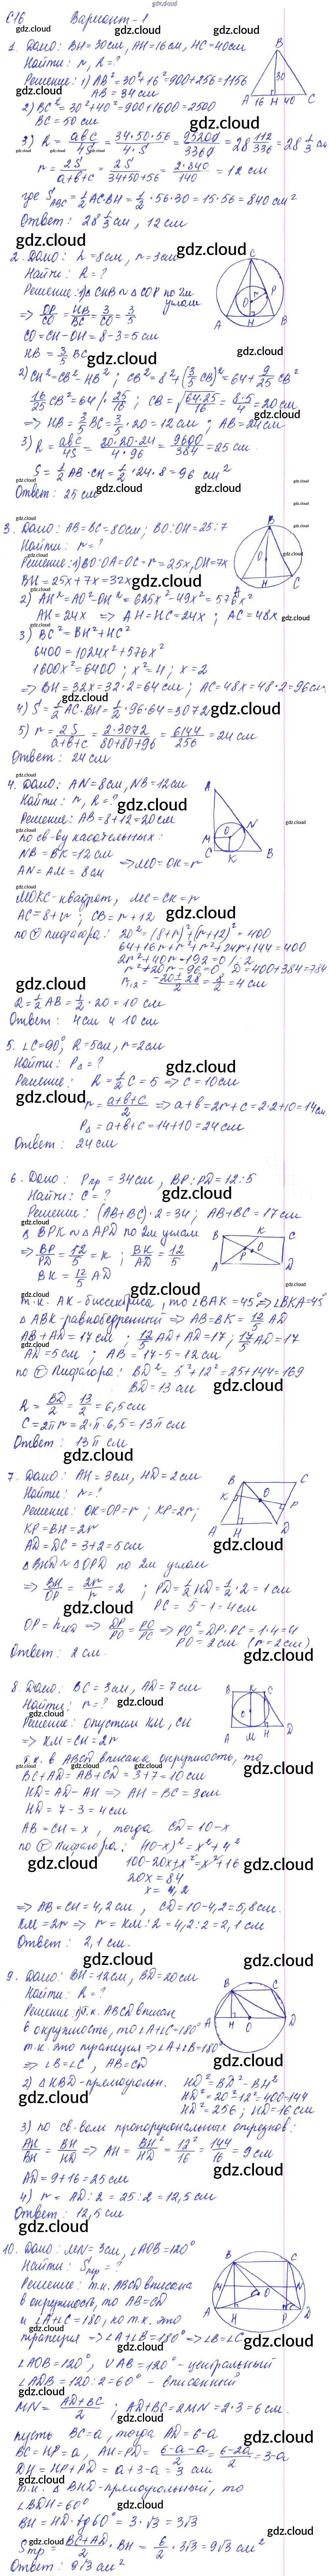 С16 Вариант-1
1. Дано: BH=30см, AH=16см, HC=40см
Найти: r, R=?
Решение: 1) AB²=30²+16²=900+256=1156
AB=34см
2) BC²=30²+40²=900+1600=2500
BC=50 см
3) R = abc/4S = 34·50·56/4·S = 95200/3360 = 28 112/336 = 28 1/3 см
r = 2S/a+b+c = 2S/34+50+56 = 2·840/140 = 12 см
где S_ABC = 1/2 AC·BH = 1/2 ·56·30=15·56=840 см²
Ответ: 28 1/3 см, 12 см
2. Дано: h=8см, r=3см
Найти: R=?
Решение: 1) ΔCHB ~ ΔCOP по 2м углам
=> OP/CO = HB/BC = 3/CO = 3/5
CO=CH-OH=8-3=5см
HB = 3/5 BC
2) CH²=CB²-HB²; CB²=8²+(3/5 CB)²=64+9/25 CB²
16/25 CB²=64 /· 25/16; CB=√64·25/16 = 8·5/4 = 20см
=> HB= 3/5 BC= 3/5 ·20=12 см; AB=24см
3) R= abc/4S = 20·20·24/4·96 = 9600/384 = 25 см.
S= 1/2 AB·CH= 1/2 ·24·8=96 см²
Ответ: 25 см
3. Дано: AB=BC=80см; BO:OH=25:7
Найти: r=?
Решение: 1) BO=OA=OC=r=25x, OH=7x
BH=25x+7x=32x
2) AH²=AO²-OH²=625x²-49x²=576x²
AH=24x => AH=HC=24x; AC=48x
3) BC²=BH²+HC²
6400=1024x²+576x²
1600x²=6400; x²=4; x=2
=> BH=32x=32·2=64см; AC=48x=48·2=96см
4) S= 1/2 AC·BH= 1/2 ·96·64=3072
5) r= 2S/a+b+c = 2·3072/80+80+96 = 6144/256 = 24 см
Ответ: 24 см
4. Дано: AN=8см, NB=12см
Найти: r, R=?
Решение: AB=8+12=20см
по св-ву касательных:
NB=BK=12см
AN=AM=8см
=> MO=OK=r
MOKC-квадрат, MC=CK=r
AC=8+r; CB=r+12
по т Пифагора: 20²=(8+r)²+(r+12)²=400
64+16r+r²+r²+24r+144=400
2r²+40r-192=0 /:2
r²+20r-96=0, D=400+384=784
r₁,₂ = -20±28/2 = 8/2 = 4 см
R= 1/2 AB= 1/2 ·20=10 см
Ответ: 4см и 10 см
5. ∠C=90°, R=5см, r=2см
Найти: PΔ=?
Решение: R= 1/2 C=5 => C=10см
r= a+b+c/2 => a+b=2r+c=2·2+10=14см
PΔ=a+b+c=14+10=24см
Ответ: 24 см
6. Дано: Pпр=34см, BP:PD=12:5
Найти: C=?
Решение: (AB+BC)·2=34; AB+BC=17см
Δ BPK ~ ΔAPD по 2м углам
=> BP/PD = 12/5 = k; BK/AD = 12/5
BK= 12/5 AD
т.к. AK-биссектриса, то ∠BAK=45° => ∠BKA=45°
ΔABK-равнобедренный => AB=BK= 12/5 AD
AB+AD=17см; 12/5 AD+AD=17; 17/5 AD=17
AD=5см; AB=17-5=12см
по т Пифагора: BD²=5²+12²=25+144=169
BD=13 см
R= BD/2 = 13/2 = 6,5см
C=2πr=2·π·6,5=13π см
Ответ: 13π см
7. Дано: AH=3см, HD=2см
Найти: r=?
Решение: OK=OP=r; KP=2r;
KP=BH=2r
AD=DC=3+2=5см
ΔBHD ~ ΔOPD по 2м углам
=> BH/OP = 2r/r = 2; PD= 1/2 HD= 1/2 ·2=1см
PC=5-1=4см
OP=h => DP/PO = PO/PC => PO²=DP·PC=1·4=4
PO=2см (r=2см)
Ответ: 2 см.
8 Дано: BC=3см, AD=7см
Найти: r=?
Решение: опустим KM, CH
=> KM=CH=2r
т.к. в ABCD вписана окружность, то
BC+AD=AB+CD=3+7=10см
HD=AD-AH => AH=BC=3см
HD=7-3=4см
AB=CH=x, тогда CD=10-x
по т Пифагора: (10-x)²=x²+4²
100-20x+x²=x²+16
20x=84
x=4,2
=> AB=CH=4,2см, CD=10-4,2=5,8см.
KM=2r => r=KM:2=4,2:2=2,1см
Ответ: 2,1 см.
9. Дано: BH=12см, BD=20см
Найти: R=?
Решение: 1) т.к. ABCD вписан
в окружность, то ∠A+∠C=180°
т.к. это трапеция => ∠A+∠B=180°
=> ∠B=∠C, AB=CD
2) ΔHBD-прямоугольн. HD²=BD²-BH²
HD²=20²-12²=400-144
HD²=256; HD=16см
3) по св-вам пропорциональных отрезков:
AH/BH = BH/HD => AH= BH²/HD = 12²/16 = 144/16 = 9 см
AD=9+16=25см
4) r=AD:2=25:2=12,5см
Ответ: 12,5см
10. Дано: MN=3см, ∠AOB=120°
Найти: Sтр=?
Решение: т.к. ABCD вписана
в окружность, то AB=CD
и ∠A+∠C=180, но т.к. это
трапеция => ∠A+∠B=180° => ∠B=∠C
∠AOB=120°, ∪AB=120°-центральный
∠ADB=120:2=60°-вписанный
MN= AD+BC/2; AD+BC=2MN=2·3=6см.
пусть BC=a, тогда AD=6-a
BC=HP=a, AH=PD= 6-a-a/2 = 6-2a/2 = 3-a
DH=HP+PD=a+3-a=3 см
т.к. ΔBHD-прямоугольный, то
∠BDH=60°
BH=HD·tg60°=3·√3=3√3
Sтр= BC+AD/2 ·BH= 6/2 ·3√3=9√3 см²
Ответ: 9√3 см²
gdz.cloud